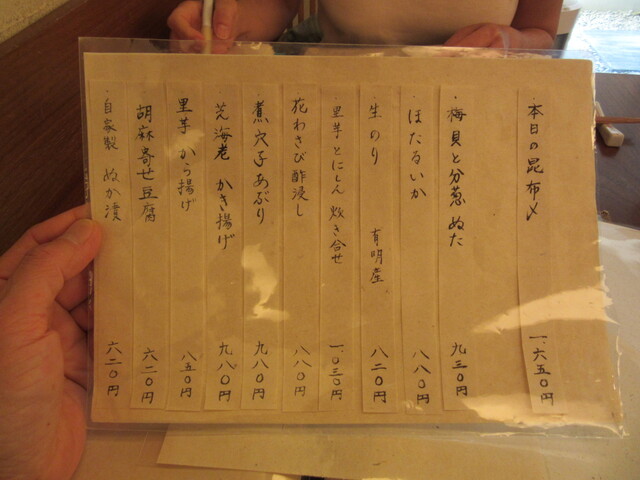 本日の昆布〆 一、六五〇円
梅貝と分葱ぬた 九三〇円
ほたるいか 八八〇円
生のり 有明産 八二〇円
里芋とにしん 炊き合せ 一、〇三〇円
花わさび 酢浸し 八八〇円
煮穴子あぶり 九八〇円
芝海老 かき揚げ 九八〇円
里芋 から揚げ 八五〇円
胡麻寄せ豆腐 六二〇円
自家製 ぬか漬 六二〇円